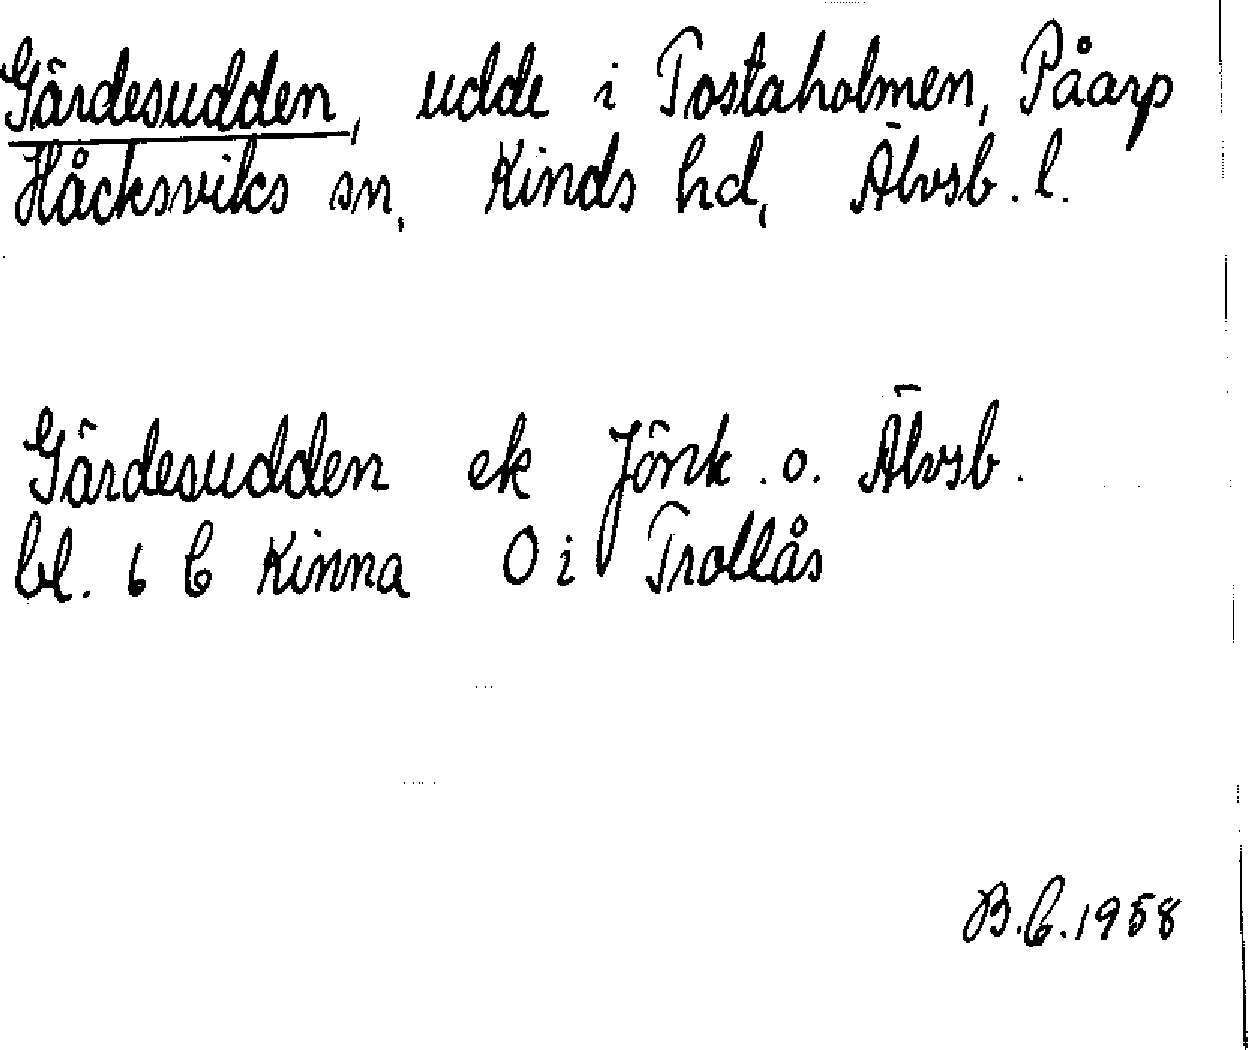 Gärdesudden, udde i Tostaholmen, Påarp
Håcksviks sn, Kinds hd, Älvsb. l.
Gärdesudden ek Jönk. o. Älvsb.
bl. 6 C Kinna 0 i Trollås
B.C. 1958